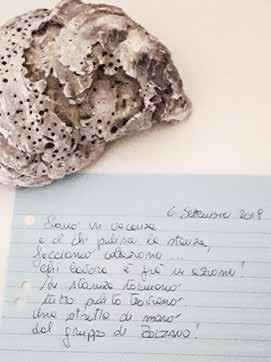 6 Settembre 2019
Siamo in vacanza
e c'è chi pulisce la stanza,
facciamo colazione...
Chi lavora è già in azione!
In stanza torniamo
tutto pulito troviamo
Una stretta di mano
dal gruppo di BOLZANO!